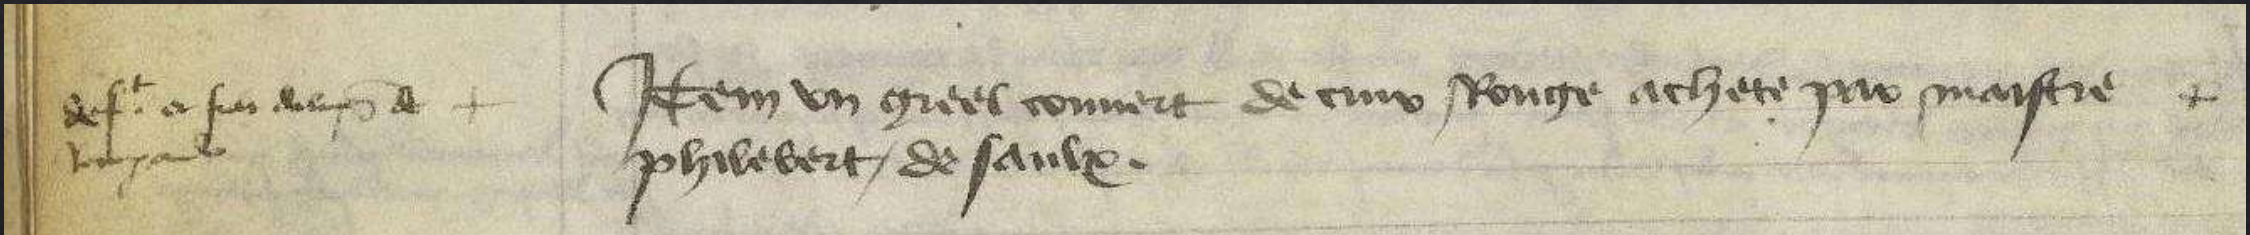 deft
Item un greel couvert de cuir Rouge achete par maistre +
philebert / de saulx.